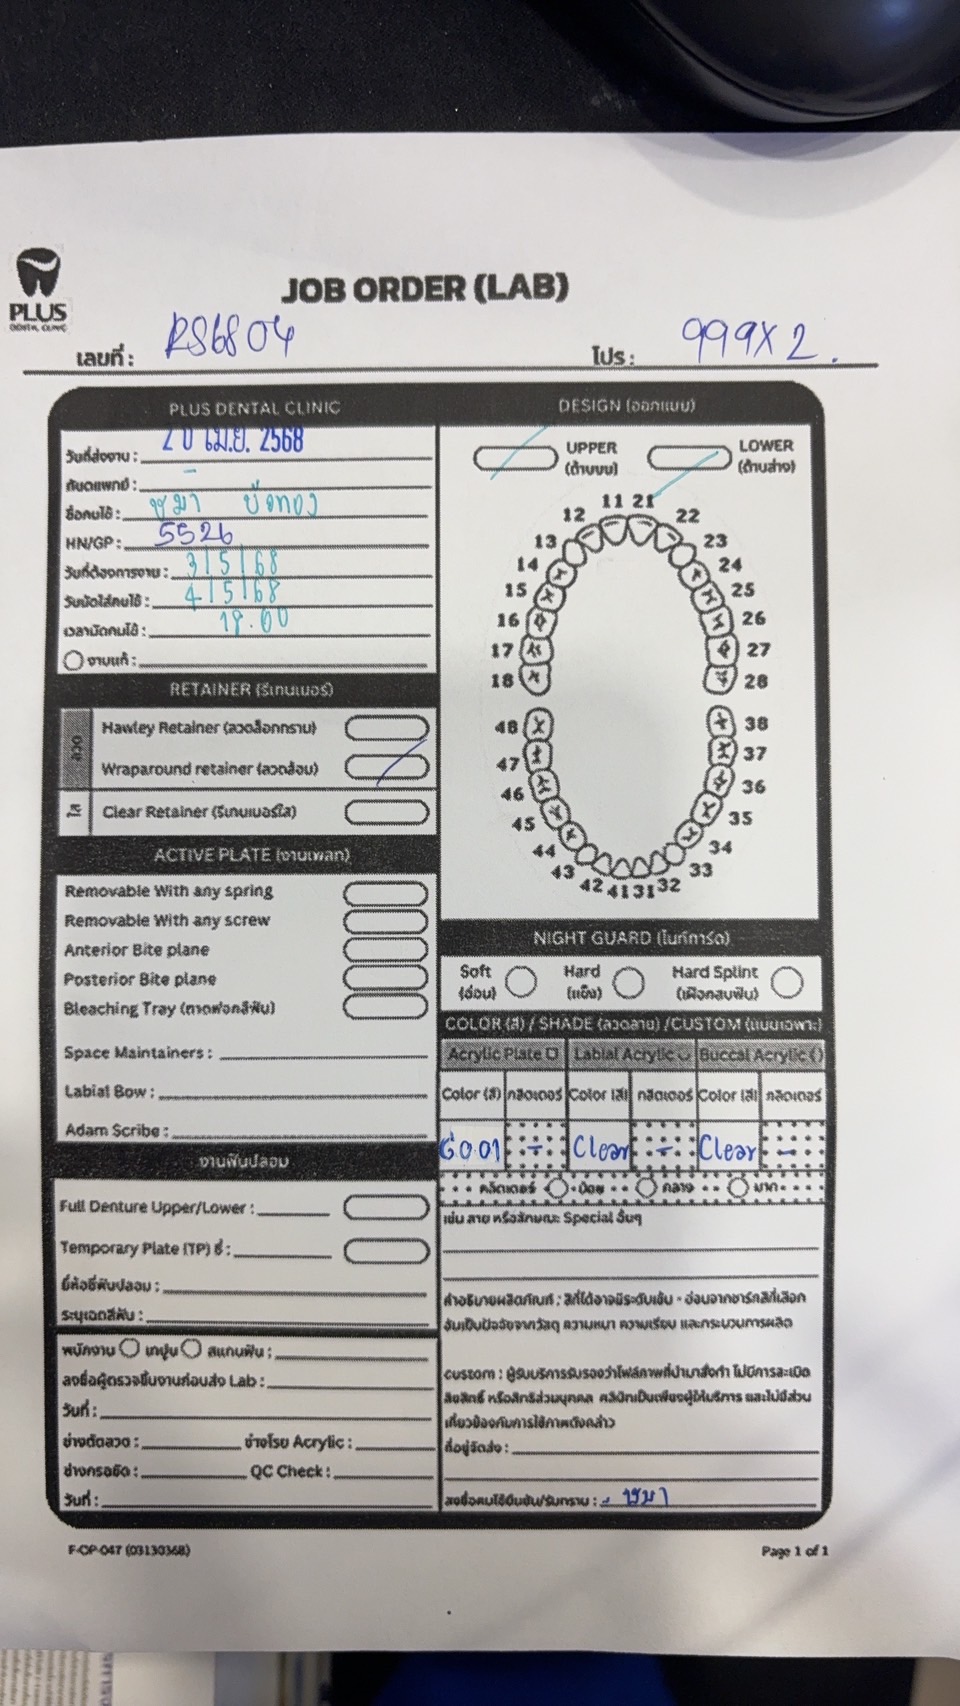 PLUS
DENTAL CLINIC
JOB ORDER (LAB)
เลขที่ : RS6804 โปร : 999X2.
PLUS DENTAL CLINIC
วันที่ส่งงาน : 20 เม.ย. 2568
ทันตแพทย์ : -
ชื่อคนไข้ :
HN/GP : 5526
วันที่ต้องการงาน : 3/5/68
วันนัดใส่คนไข้ : 4/5/68
เวลานัดคนไข้ : 19.00
งานแก้ :
RETAINER (รีเทนเนอร์)
ลวด
Hawley Retainer (ลวดล็อกกราม)
Wraparound retainer (ลวดล้อม)
ใส
Clear Retainer (รีเทนเนอร์ใส)
ACTIVE PLATE (งานเพลท)
Removable With any spring
Removable With any screw
Anterior Bite plane
Posterior Bite plane
Bleaching Tray (ถาดฟอกสีฟัน)
Space Maintainers :
Labial Bow :
Adam Scribe :
งานฟันปลอม
Full Denture Upper/Lower :
Temporary Plate (TP) ซี่ :
ยี่ห้อซี่ฟันปลอม :
ระบุเฉดสีฟัน :
พนักงาน เทปูน สแกนฟัน :
ลงชื่อผู้ตรวจชิ้นงานก่อนส่ง Lab :
วันที่ :
ช่างดัดลวด : ช่างโรย Acrylic :
ช่างกรอขัด : QC Check :
วันที่ :
DESIGN (ออกแบบ)
UPPER
(ด้านบน)
LOWER
(ด้านล่าง)
11 21
12 22
13 23
14 24
15 25
16 26
17 27
18 28
48 38
47 37
46 36
45 35
44 34
43 33
42 41 31 32
NIGHT GUARD (ไนท์การ์ด)
Soft
(อ่อน)
Hard
(แข็ง)
Hard Splint
(เฝือกสบฟัน)
COLOR (สี) / SHADE (ลวดลาย) /CUSTOM (แบบเฉพาะ)
Acrylic Plate Labial Acrylic Buccal Acrylic
Color (สี) กลิตเตอร์ Color (สี) กลิตเตอร์ Color (สี) กลิตเตอร์
G001 - Clear - Clear -
กลิตเตอร์ น้อย กลาง มาก
เช่น ลาย หรือลักษณะ Special อื่นๆ
คำอธิบายผลิตภัณฑ์ : สีที่ได้อาจมีระดับเข้ม - อ่อนจากชาร์ทสีที่เลือก
อันเป็นปัจจัยจากวัสดุ ความหนา ความเรียบ และกระบวนการผลิต
custom : ผู้รับบริการรับรองว่าไฟล์ภาพที่นำมาสั่งทำ ไม่มีการละเมิด
ลิขสิทธิ์ หรือสิทธิส่วนบุคคล คลินิกเป็นเพียงผู้ให้บริการ และไม่มีส่วน
เกี่ยวข้องกับการใช้ภาพดังกล่าว
ที่อยู่จัดส่ง :
ลงชื่อคนไข้ยืนยัน/รับทราบ :
F-OP-047 (03130368)
Page 1 of 1